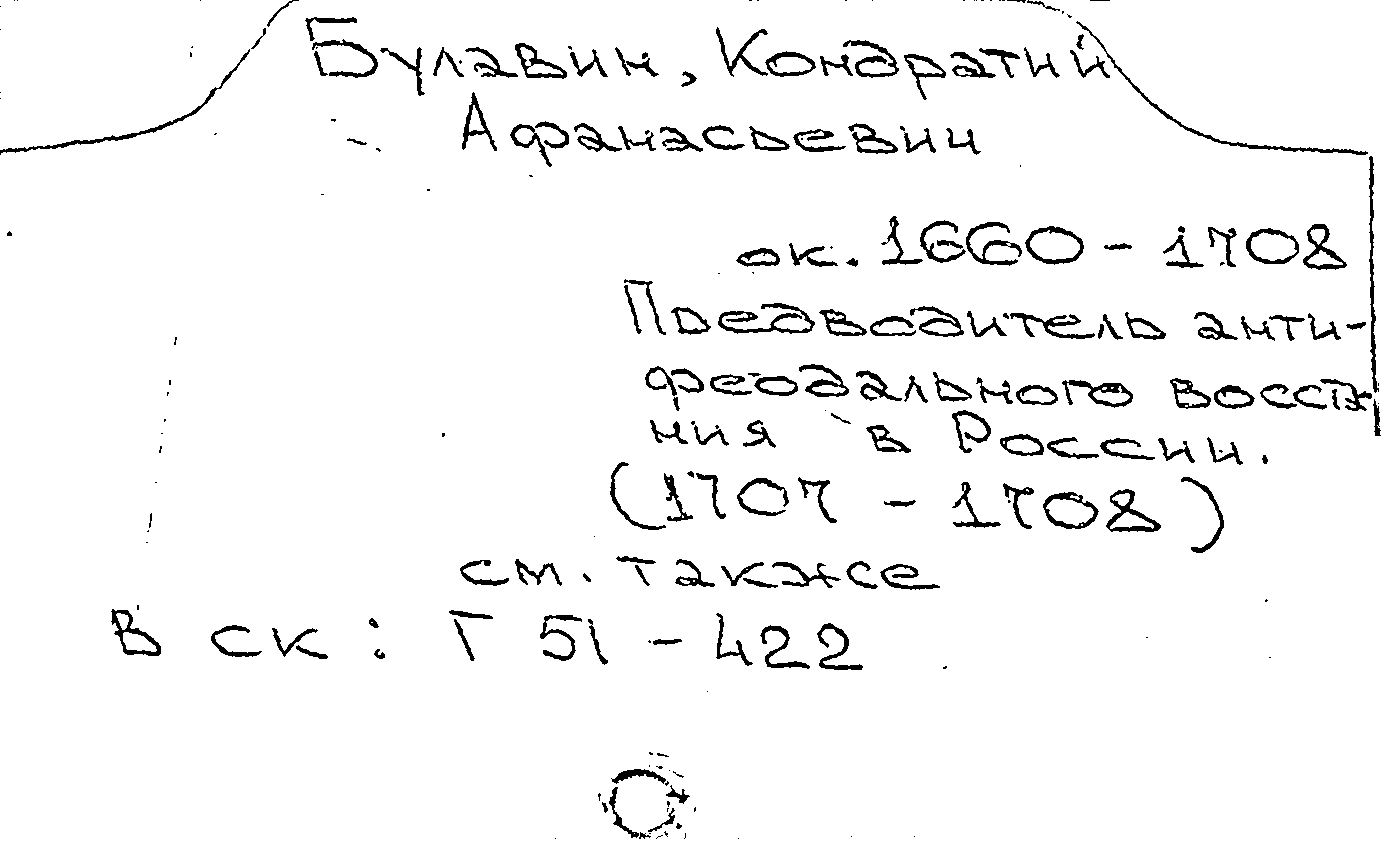 Булавин, Кондратий
Афанасьевич
ок. 1660 - 1708
Предводитель анти-
феодального восста
ния в России.
(1707 - 1708)
см. также
В ск: Г 51 - 422